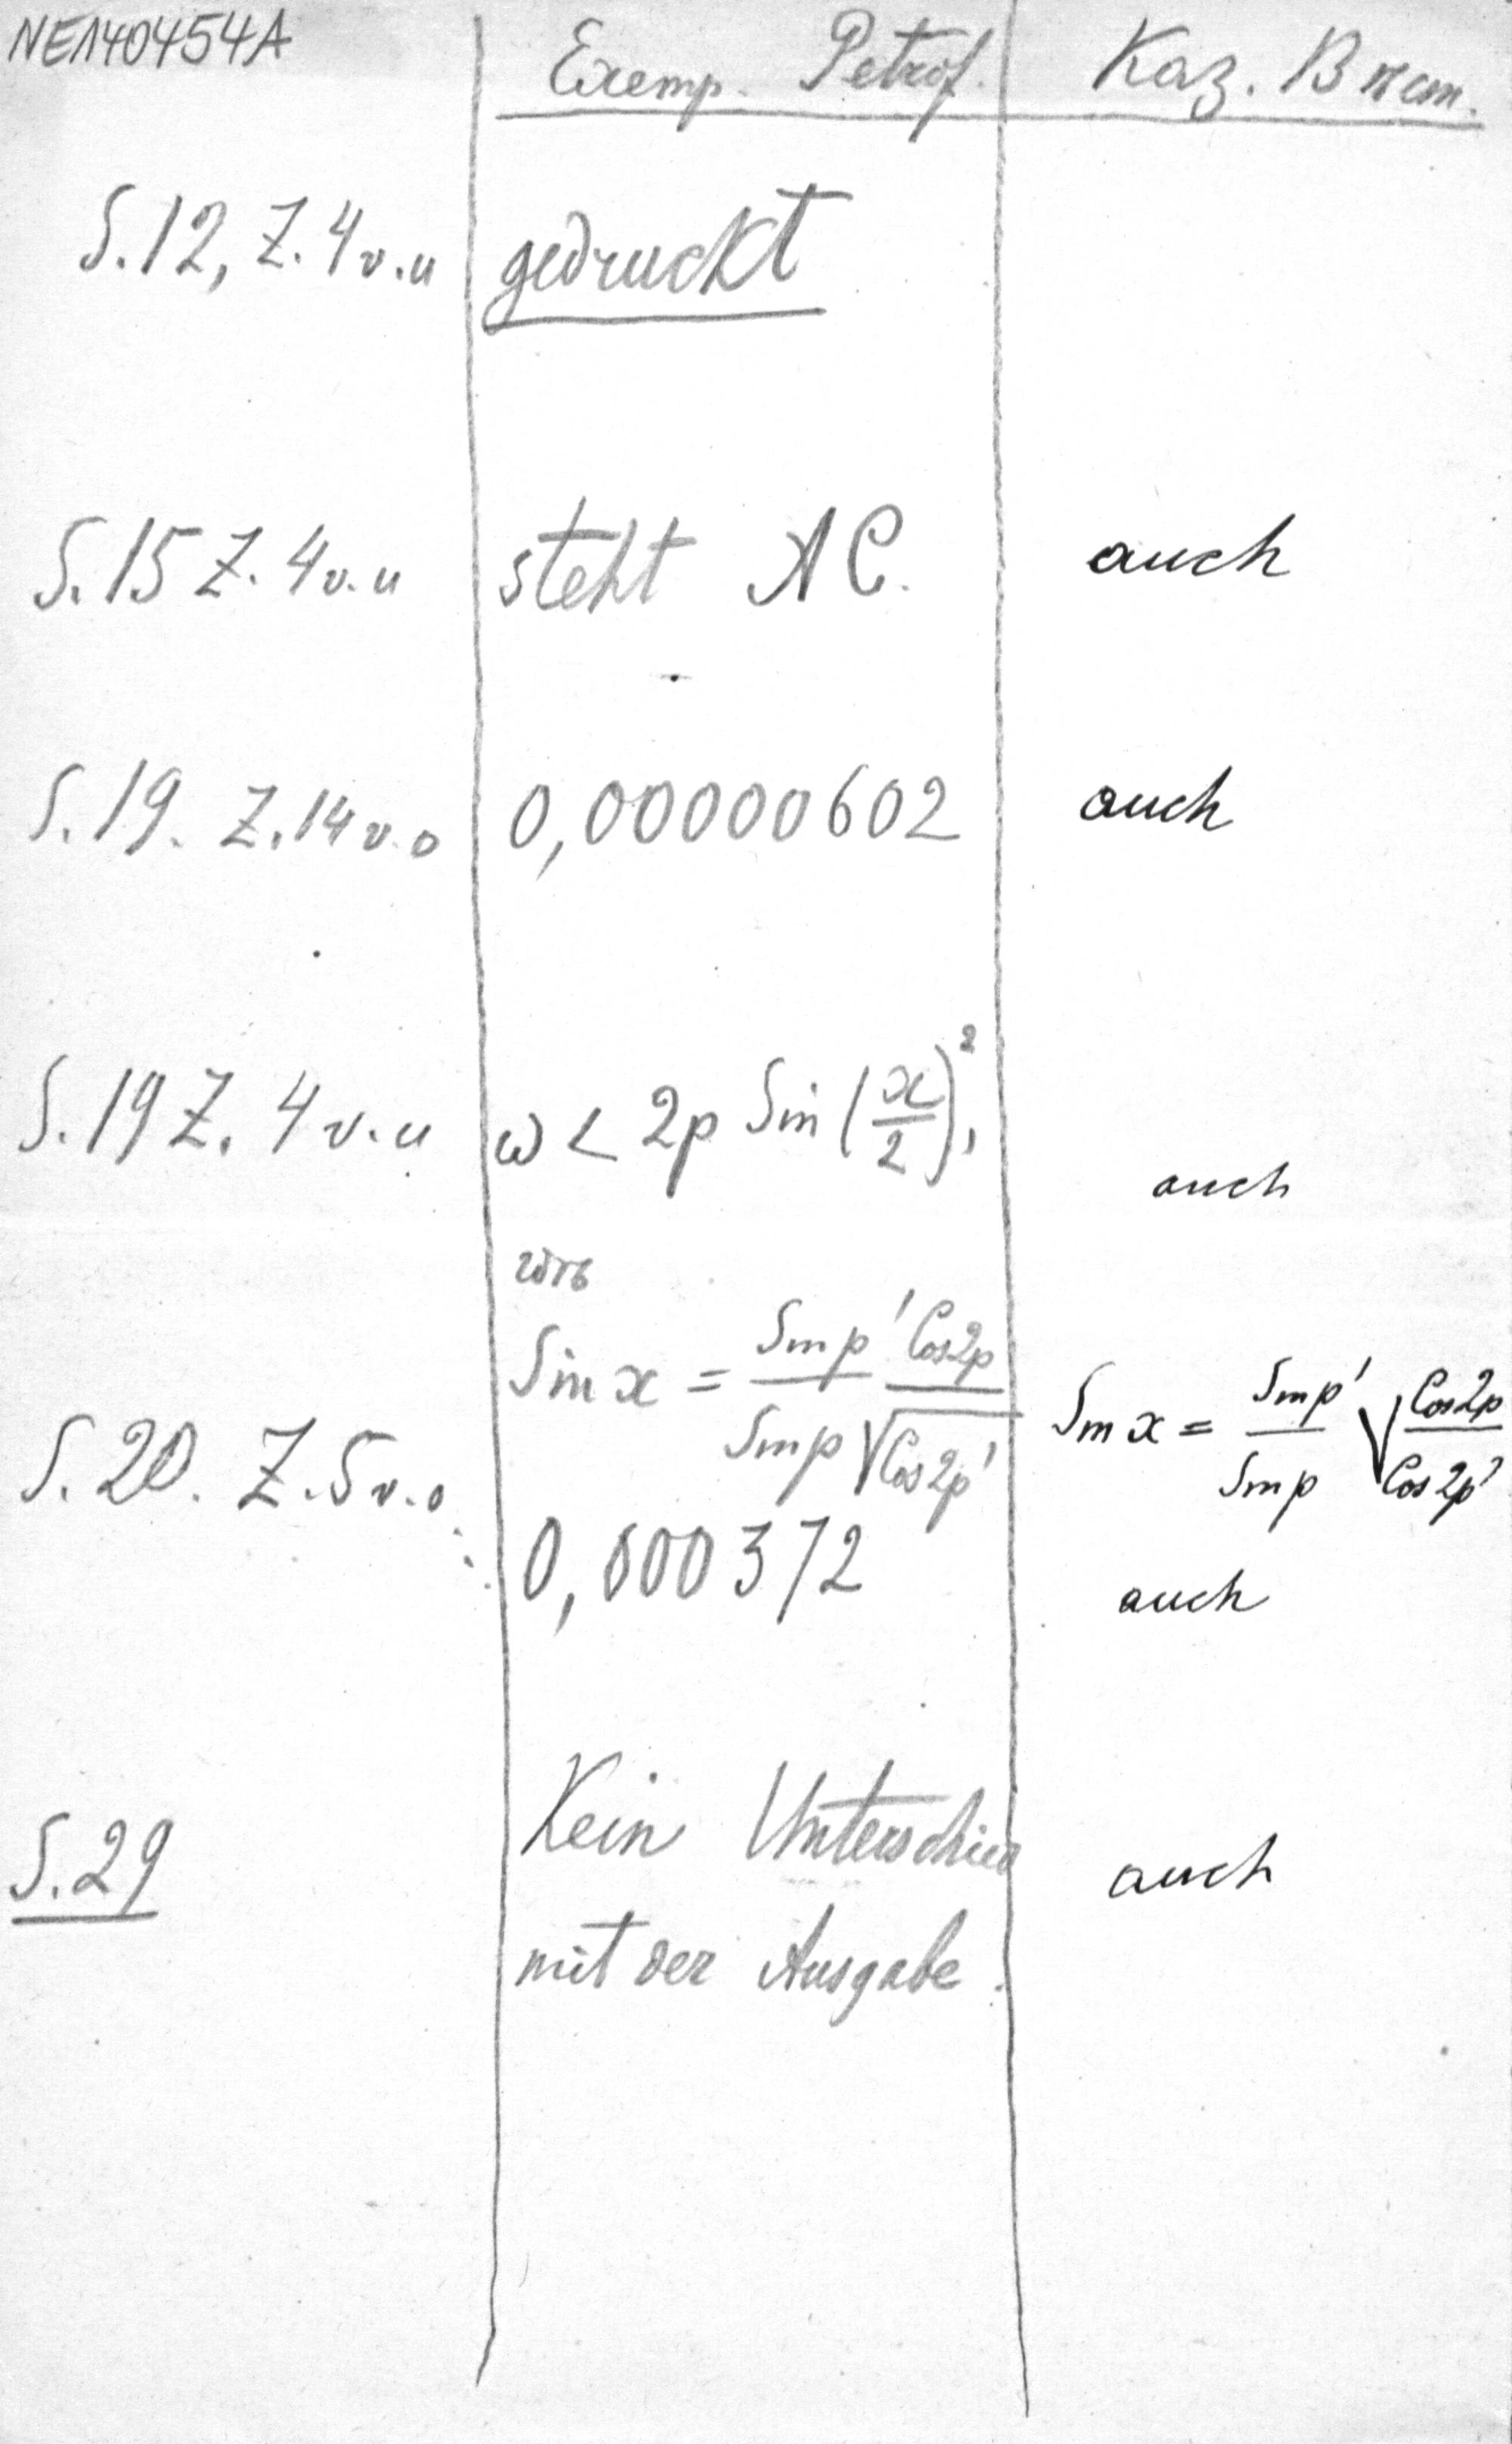 NE140454A
Exemp. Petrof. Каз. Вѣст.
S.12, Z.4 v.u gedruckt
S.15 Z.4 v.u steht AC. auch
S.19. Z.14 v.o 0,00000602 auch
S.19 Z. 4 v.u ω < 2p Sin (x/2)², auch
Sin x = Sin p'/Sin p √Cos2p/Cos2p' Sin x = Sin p'/Sin p √Cos2p/Cos2p'
S.20. Z.5 v.o.
0,000372 auch
S.29 Kein Unterschied auch
mit der Ausgabe.